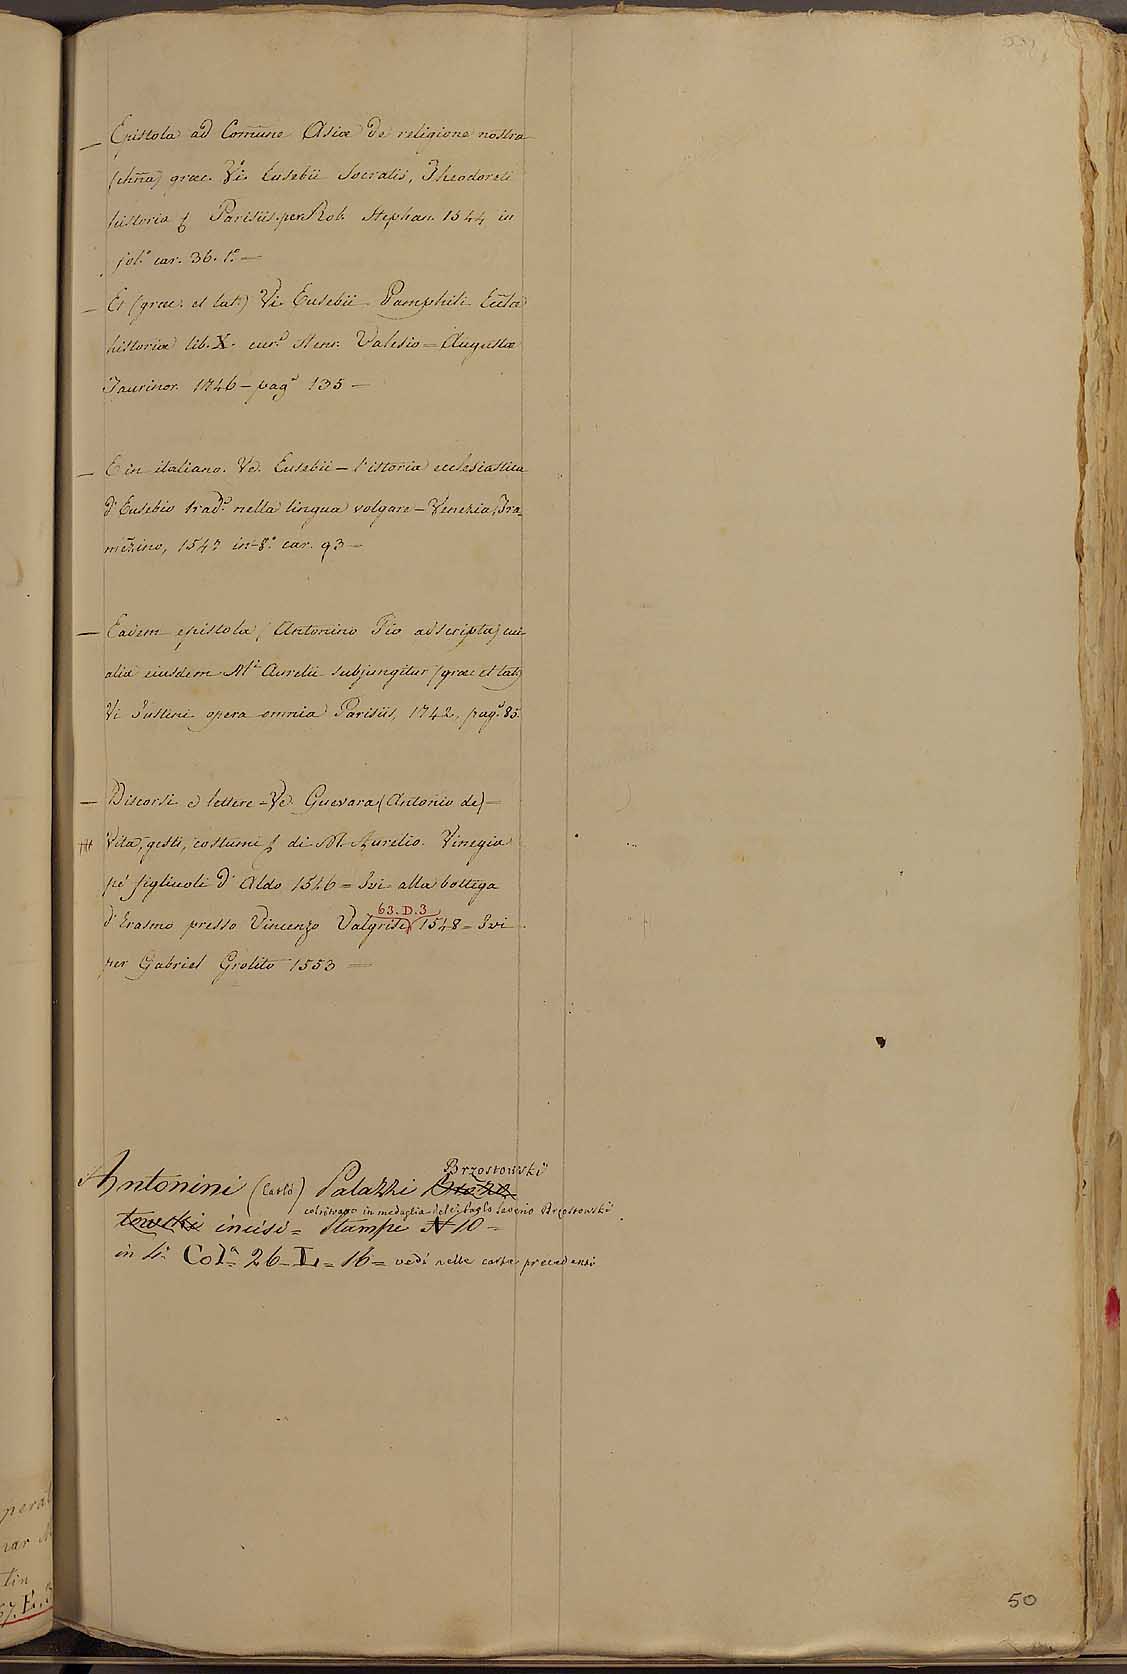 — Epistola ad Comune Asiae De religione nostra
(chña) graec. Vi. Eusebii Socratis, Theodoreti
historia & Parisiis. per Rob. Stephan. 1544 in
fol.° car. 36. t.° —
— Et (graec. et lat.) Vi. Eusebii Pamphili Eccla
historiae lib. X. cur.e Henr. Valesio = Augustae
Taurinor. 1746 — pag.a 135 —
— E in italiano. Ve. Eusebii — l'istoria ecclesiastica
d'Eusebio trad.a nella lingua volgare — Venezia, Tra-
mezzino, 1547 in-8.° car. 93 —
— Eadem epistola (Antonino Pio adscripta) cui
alia eiusdem M.i Aurelii subjungitur (graec et lat.)
Vi Justini opera omnia Parisiis, 1742, pag.a 85
— Discorsi e lettere — Ve. Guevara (Antonio de) —
Vita, gesti, costumi & di M. Aurelio. Vinegia
pe' figliuoli d'Aldo 1546 = Ivi alla bottega
63.D.3
d'Erasmo presso Vincenzo Valgrisi, 1548 = Ivi
per Gabriel Grolito 1553 =
Brzostowski
Antonini (Carlo) Palazzi Brozo
col ritratto in medaglia del Paolo Saverio Brzostowski
towski incisi = Stampe N 10 =
in 4.° Col.a 26 - L = 16 = vedi nelle carte precedenti
50